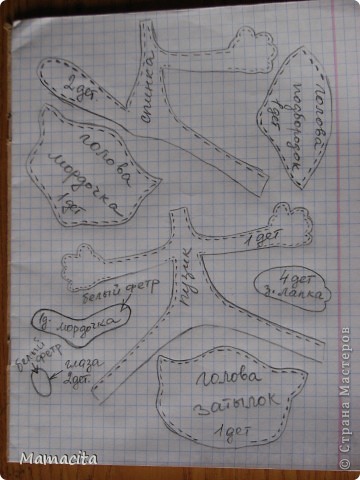 2 дет.
спинка
голова
подбородок
1 дет
голова
мордочка
1 дет
1 дет
пузик
белый фетр
4 дет
з. лапка
мордочка
белый
фетр
глаза
2 дет.
голова
затылок
1 дет
Mamacita
© Страна Мастеров